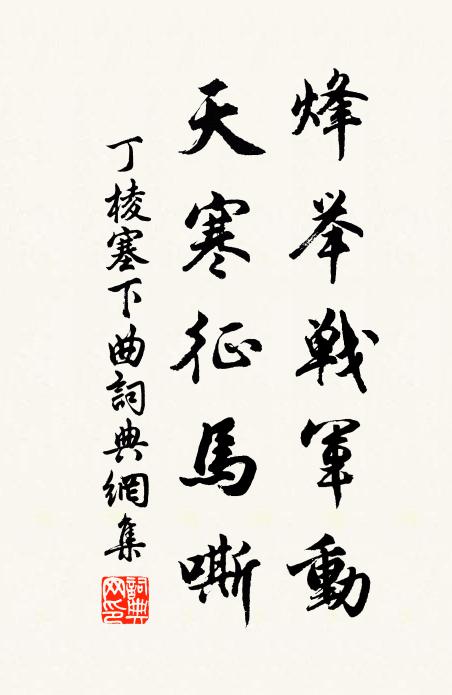 烽举戦軍動
天寒征馬嘶
丁棱塞下曲詞典網集
詞典
网印